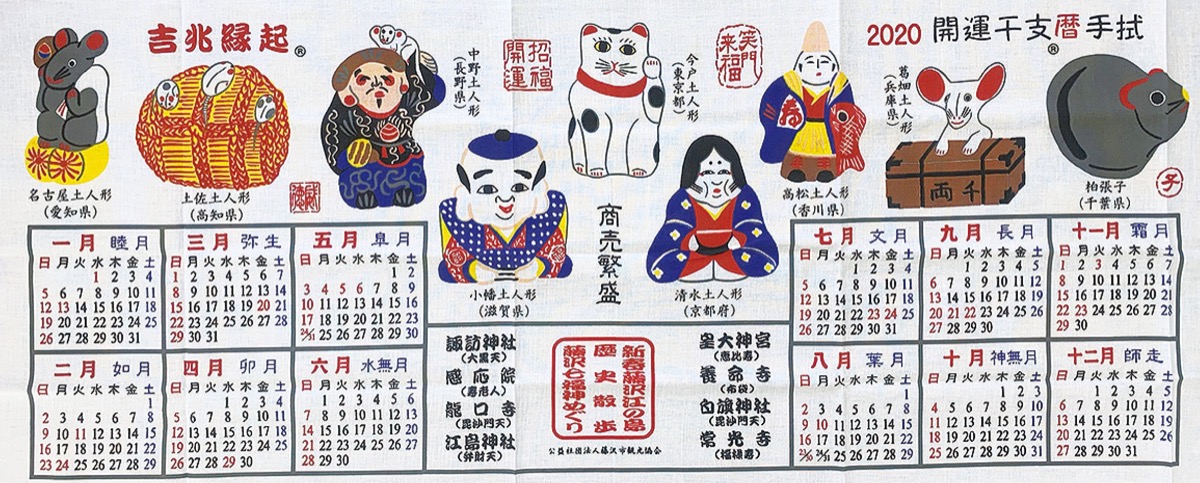 吉兆縁起®
2020 開運干支暦手拭
®
招福
開運
笑門
来福
名古屋土人形
(愛知県)
土佐土人形
(高知県)
中野土人形
(長野県)
今戸土人形
(東京都)
寿
高松土人形
(香川県)
葛畑土人形
(兵庫県)
千両
柏張子
(千葉県)
子
小幡土人形
(滋賀県)
商売繁盛
清水土人形
(京都府)
一月 睦月
日 月 火 水 木 金 土
1 2 3 4
5 6 7 8 9 10 11
12 13 14 15 16 17 18
19 20 21 22 23 24 25
26 27 28 29 30 31
三月 弥生
日 月 火 水 木 金 土
1 2 3 4 5 6 7
8 9 10 11 12 13 14
15 16 17 18 19 20 21
22 23 24 25 26 27 28
29 30 31
五月 皐月
日 月 火 水 木 金 土
1 2
3 4 5 6 7 8 9
10 11 12 13 14 15 16
17 18 19 20 21 22 23
24/31 25 26 27 28 29 30
二月 如月
日 月 火 水 木 金 土
1
2 3 4 5 6 7 8
9 10 11 12 13 14 15
16 17 18 19 20 21 22
23 24 25 26 27 28 29
四月 卯月
日 月 火 水 木 金 土
1 2 3 4
5 6 7 8 9 10 11
12 13 14 15 16 17 18
19 20 21 22 23 24 25
26 27 28 29 30
六月 水無月
日 月 火 水 木 金 土
1 2 3 4 5 6
7 8 9 10 11 12 13
14 15 16 17 18 19 20
21 22 23 24 25 26 27
28 29 30
諏訪神社
(大黒天)
感応院
(寿老人)
龍口寺
(毘沙門天)
江島神社
(弁財天)
新春藤沢江の島
歴史散歩
藤沢七福神めぐり
公益社団法人藤沢市観光協会
皇大神宮
(恵比寿)
養命寺
(布袋)
白旗神社
(毘沙門天)
常光寺
(福禄寿)
七月 文月
日 月 火 水 木 金 土
1 2 3 4
5 6 7 8 9 10 11
12 13 14 15 16 17 18
19 20 21 22 23 24 25
26 27 28 29 30 31
九月 長月
日 月 火 水 木 金 土
1 2 3 4 5
6 7 8 9 10 11 12
13 14 15 16 17 18 19
20 21 22 23 24 25 26
27 28 29 30
十一月 霜月
日 月 火 水 木 金 土
1 2 3 4 5 6 7
8 9 10 11 12 13 14
15 16 17 18 19 20 21
22 23 24 25 26 27 28
29 30
八月 葉月
日 月 火 水 木 金 土
1
2 3 4 5 6 7 8
9 10 11 12 13 14 15
16 17 18 19 20 21 22
23/30 24/31 25 26 27 28 29
十月 神無月
日 月 火 水 木 金 土
1 2 3
4 5 6 7 8 9 10
11 12 13 14 15 16 17
18 19 20 21 22 23 24
25 26 27 28 29 30 31
十二月 師走
日 月 火 水 木 金 土
1 2 3 4 5
6 7 8 9 10 11 12
13 14 15 16 17 18 19
20 21 22 23 24 25 26
27 28 29 30 31